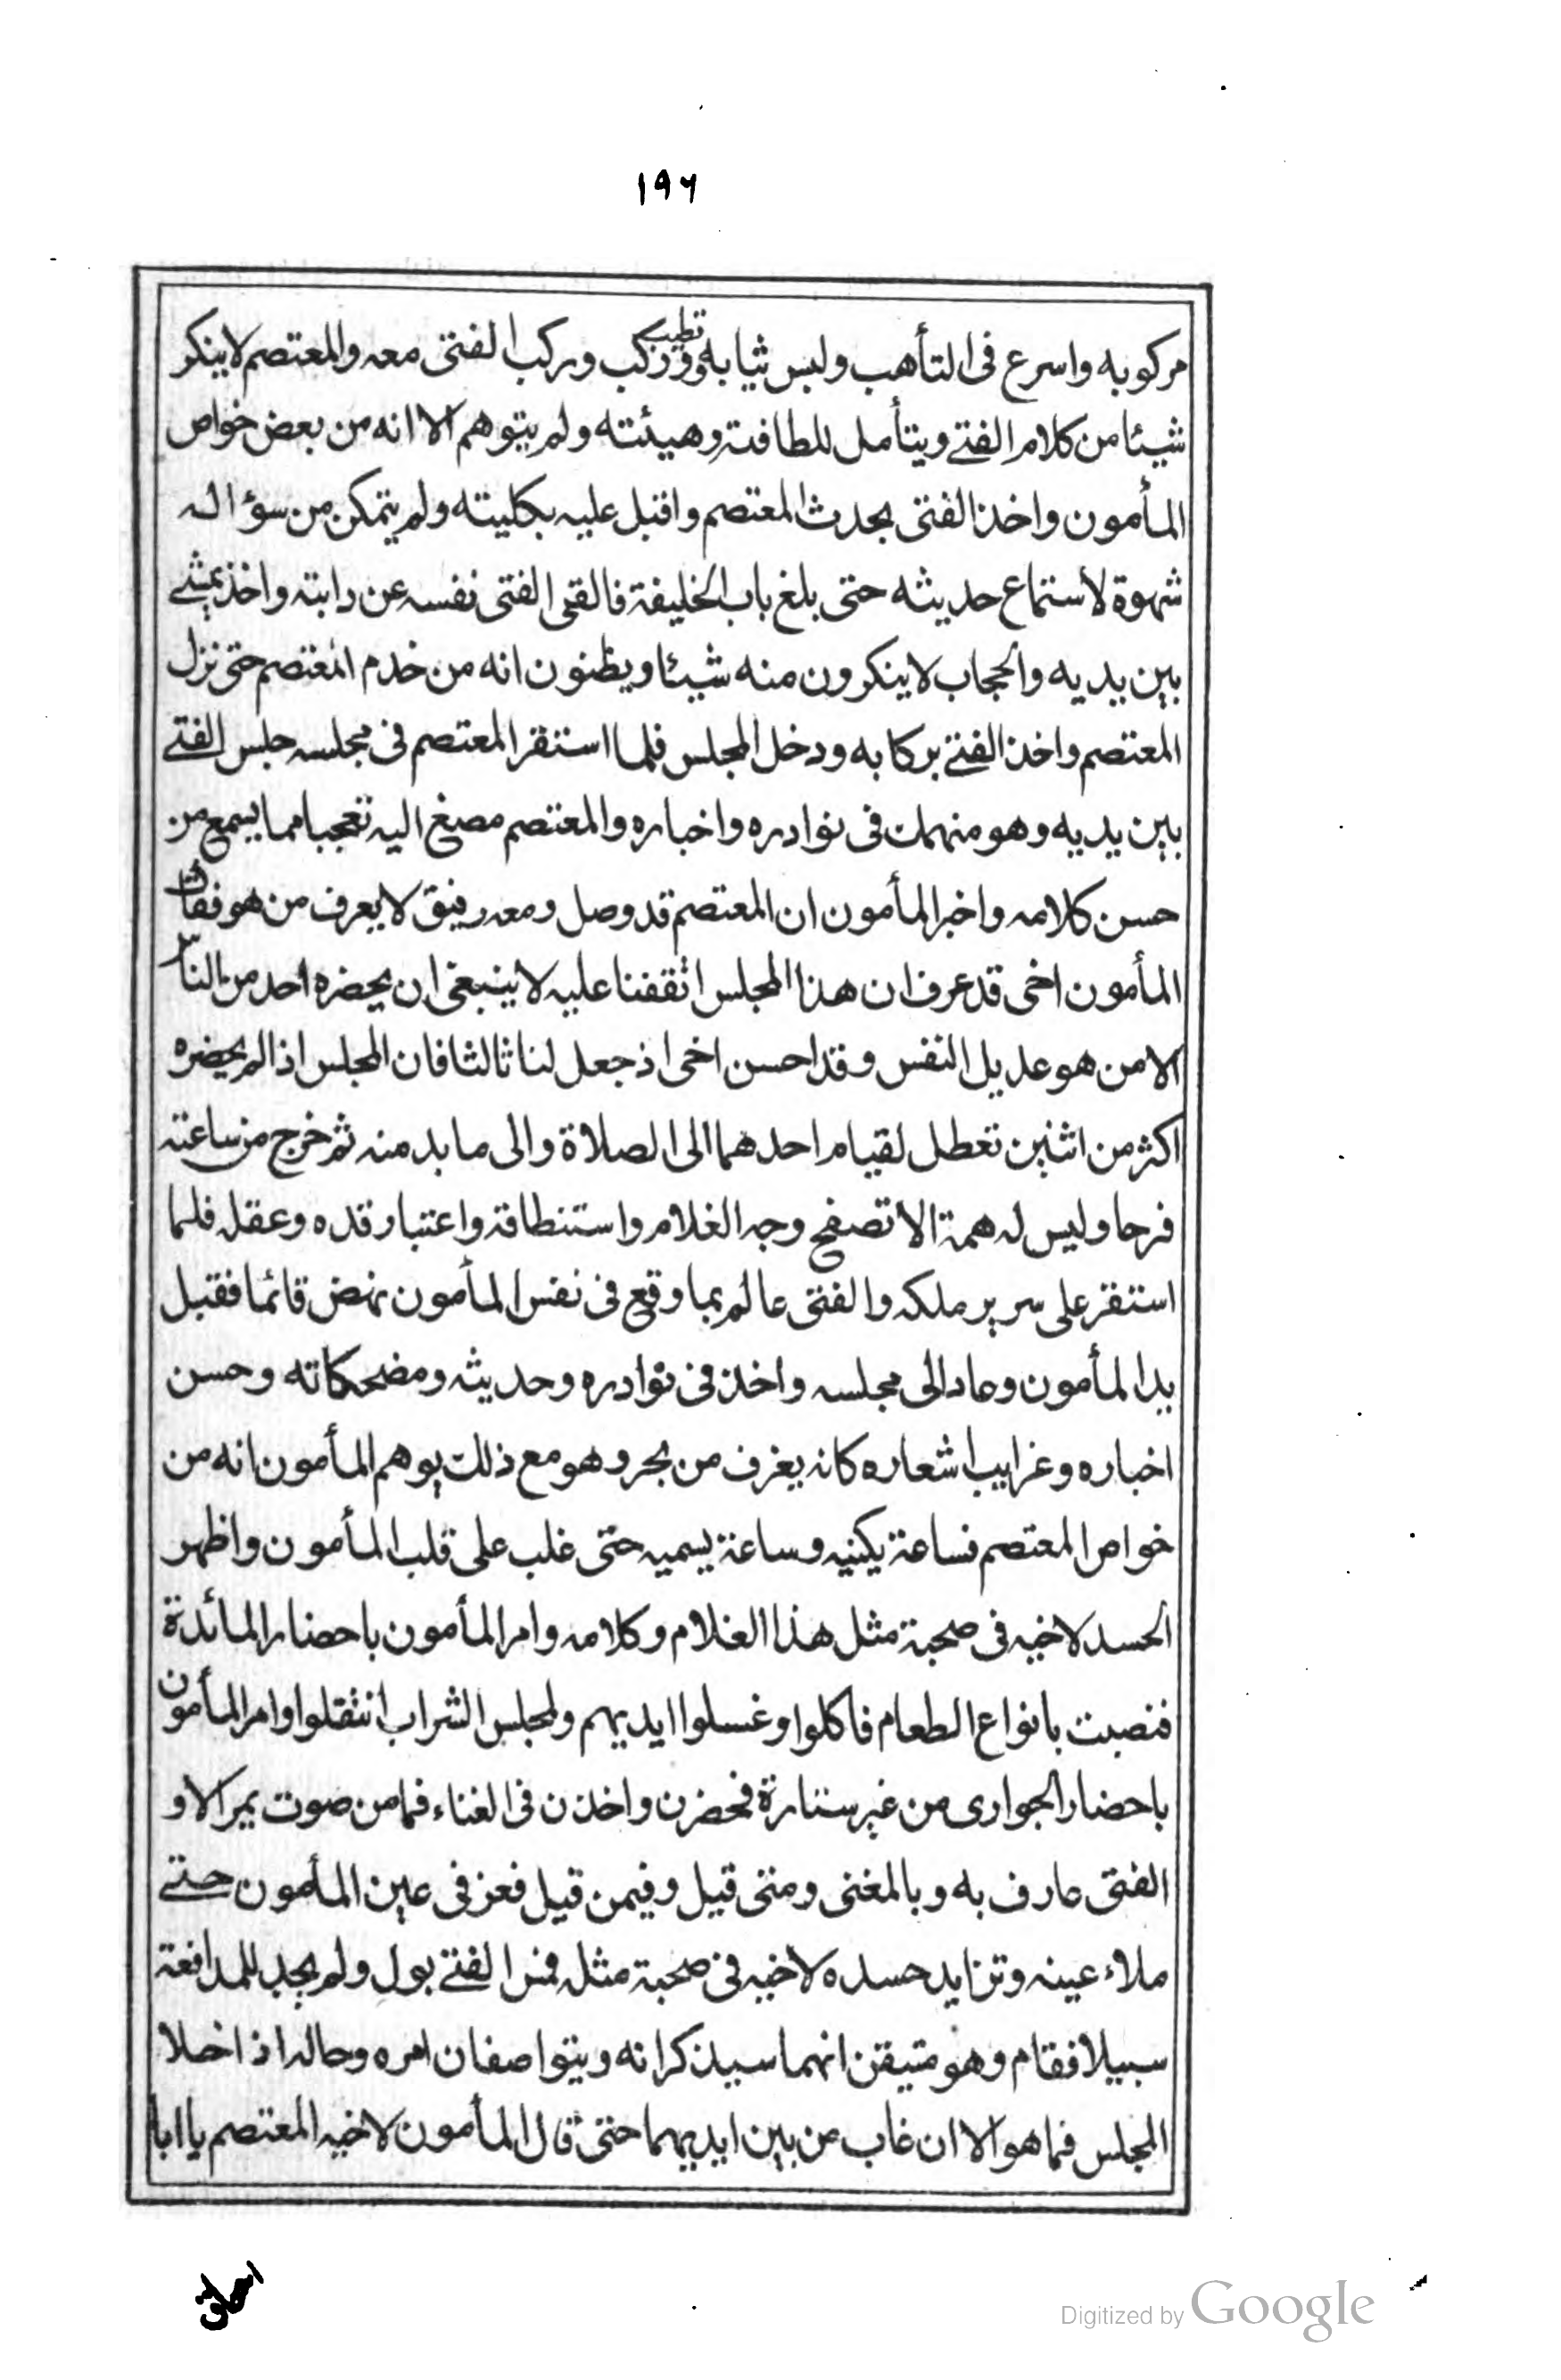 ١٩٦
مركوبه واسرع فى التأهب ولبس ثيابه وتطيب وركب وركب الفتى معه والمعتصم لاينكر
شيئا من كلام الفتى ويتأمل للطافته وهيئته ولم يتوهم الا انه من بعض خواص
المأمون واخذ الفتى يحدث المعتصم واقبل عليه بكليته ولم يتمكن من سؤاله
شهوة لأستماع حديثه حتى بلغ باب الخليفة فالقى الفتى نفسه عن دابته واخذ يمشى
بين يديه والحجاب لاينكرون منه شيئا ويظنون انه من خدم المعتصم حتى نزل
المعتصم واخذ الفتى بركابه ودخل المجلس فلما استقر المعتصم فى مجلسه جلس الفتى
بين يديه وهو منهمك فى نوادره واخباره والمعتصم مصغ اليه تعجبا مما يسمع من
حسن كلامه واخبر المأمون ان المعتصم قد وصل ومعه رفيق لا يعرف من هو فقال
المأمون اخى قد عرف ان هذا المجلس اتفقنا عليه لا ينبغى ان يحضره احد من الناس
الا من هو عديل النفس وقد احسن اخى اذ جعل لنا ثالثا فان المجلس اذا لم يحضره
اكثر من اثنين تعطل لقيام احدهما الى الصلاة والى ما بد منه ثم خرج من ساعته
فرحا وليس له همة الا تصفح وجه الغلام واستنطاقه واعتبار قده وعقله فلما
استقر على سرير ملكه والفتى عالم بما وقع فى نفس المأمون نهض قائما فقبل
يد المأمون وعاد الى مجلسه واخذ فى نوادره وحديثه ومضحكاته وحسن
اخباره وغرايب اشعاره كانه يغرف من بحر وهو مع ذلك يوهم المأمون انه من
خواص المعتصم فساعة يكنيه وساعة يسميه حتى غلب على قلب المأمون واظهر
الحسد لاخيه فى صحبة مثل هذا الغلام وكلامه وامر المأمون باحضار المائدة
فنصبت بانواع الطعام فاكلوا وغسلوا ايديهم ولمجلس الشراب انتقلوا وامر المأمون
باحضار الجوارى من غير ستارة فحضرن واخذن فى الغناء فما من صوت يمر الا و
الفتى عارف به وبالمغنى ومتى قيل وفيمن قيل فعز فى عين المأمون حتى
ملاء عينه وتزايد حسده لاخيه فى صحبة مثله فمس الفتى بول ولم يجد للمدافعة
سبيلا فقام وهو متيقن انهما سيذكرانه ويتواصفان امره وحاله اذا خلا
المجلس فما هو الا ان غاب من بين ايديهما حتى قال المأمون لاخيه المعتصم يا ابا
اسحاق
Digitized by Google